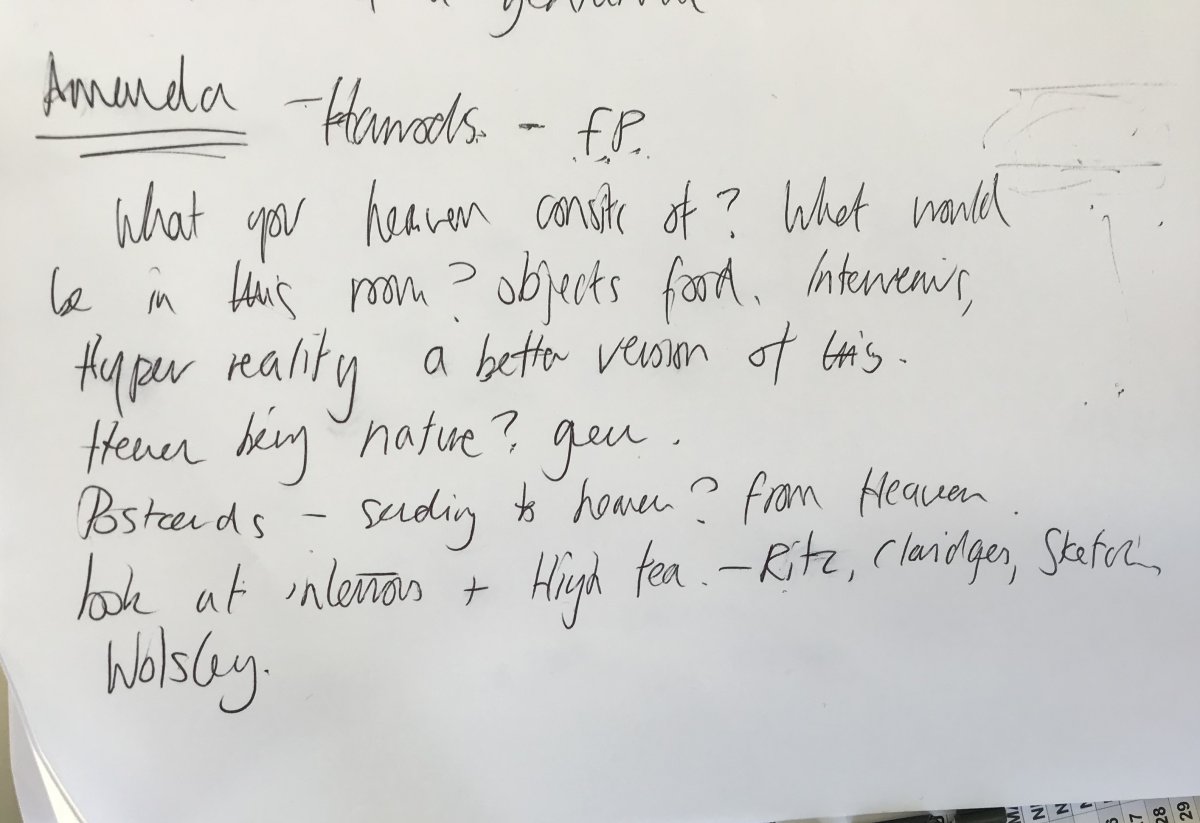 Amanda - Harrods. - F.P.
What you heaven consite of? What would
be in this room? objects food. Interveins,
Hyper reality a better version of this.
Heven being nature?
Postcards - sending to heaven? from Heaven.
look at interiors + High tea. - Ritz, Claridges, Sketch,
Wolsley.
28
29